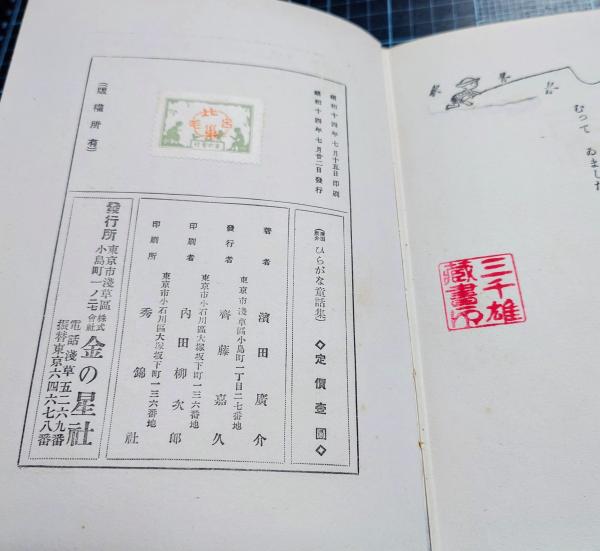 むつて ゐました
三千雄
藏書印
昭和十四年七月十五日印刷
昭和十四年七月廿二日發行
(版權所有)
ひらがな童話集
◇定價壹圓◇
著者 濱田廣介
東京市淺草區小島町一丁目二七番地
發行者 齋藤嘉久
東京市小石川區大塚坂下町一三六番地
印刷者 内田柳次郎
東京市小石川區大塚坂下町一三六番地
印刷所 秀錦社
發行所
東京市淺草區
小島町一ノ二七
株式會社 金の星社
電話淺草五二六九番
振替東京六四六七八番